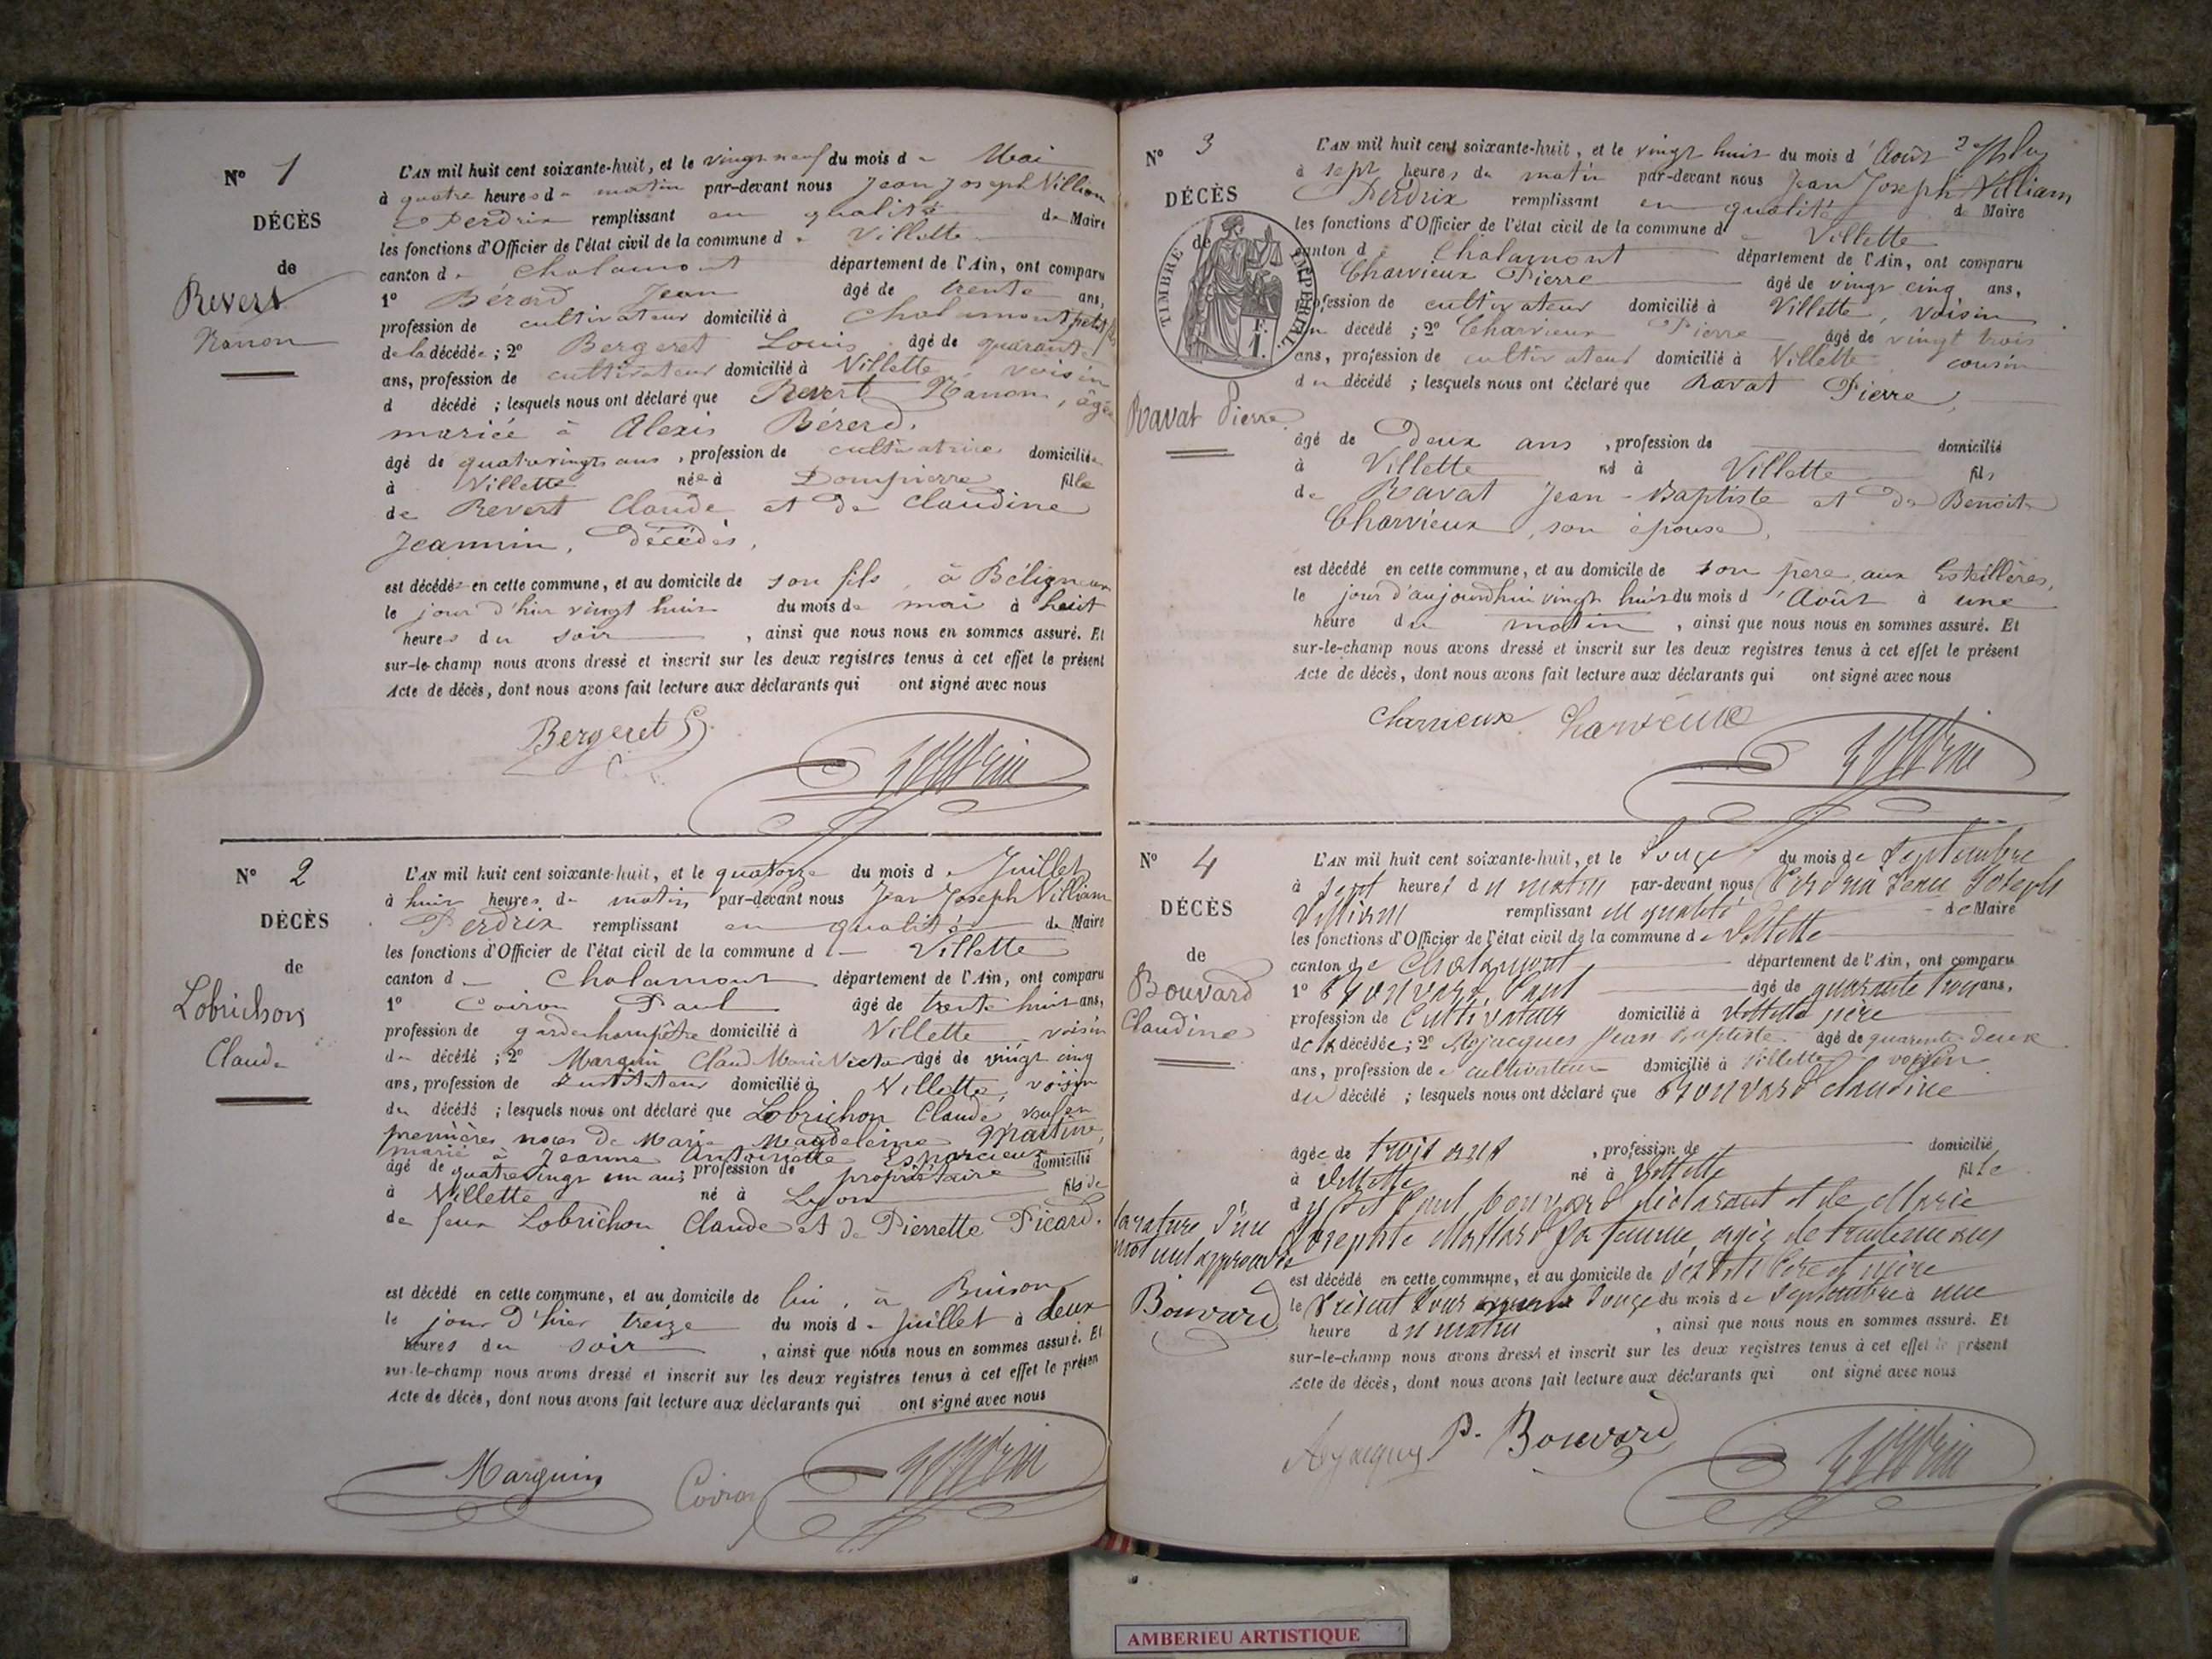 N° 1
DÉCÈS
de
Revert
Nanon
L'AN mil huit cent soixante-huit, et le vingt neuf du mois de Mai
à quatre heures du matin par-devant nous Jean Joseph Villiam
Perdrix remplissant en qualité de Maire
les fonctions d'Officier de l'état civil de la commune de Villette
canton de Chalamont département de l'Ain, ont comparu
1° Bérard Jean âgé de trente ans,
profession de cultivateur domicilié à Chalamont petit fils
de la décédée ; 2° Bergeret Louis âgé de quarante
ans, profession de cultivateur domicilié à Villette, voisin
d décédé ; lesquels nous ont déclaré que Revert Nanon, âgée
mariée à Alexis Bérerd.
âgé de quatrevingts ans, profession de cultivatrice domiciliée
à Villette née à Dompierre fille
de Revert Claude et de Claudine
Jeannin, décédés,
est décédée en cette commune, et au domicile de son fils, à Béligneux
le jour d'hier vingt huit du mois de mai à huit
heures du soir, ainsi que nous nous en sommes assuré. Et
sur-le-champ nous avons dressé et inscrit sur les deux registres tenus à cet effet le présent
Acte de décès, dont nous avons fait lecture aux déclarants qui ont signé avec nous
Bergeret
N° 2
DÉCÈS
de
Lobrichon
Claude
L'AN mil huit cent soixante-huit, et le quatorze du mois de Juillet
à huit heures du matin par-devant nous Jean Joseph Villiam
Perdrix remplissant en qualité de Maire
les fonctions d'Officier de l'état civil de la commune de Villette
canton de Chalamont département de l'Ain, ont comparu
1° Coiron Paul âgé de trente huit ans,
profession de garde champêtre domicilié à Villette voisin
du décédé ; 2° Marguin Claude Marie Victor âgé de vingt cinq
ans, profession de Instituteur domicilié à Villette, voisin
du décédé ; lesquels nous ont déclaré que Lobrichon Claude, veuf en
premières noces de Marie Magdeleine Martine,
marié à Jeanne Antoinette Esparcieux
âgé de quatrevingt un ans profession de propriétaire domicilié
à Villette né à Lyon fils de
de feux Lobrichon Claude et de Pierrette Picard.
est décédé en cette commune, et au domicile de lui, à Buison
le jour d'hier treize du mois de Juillet à deux
heures du soir, ainsi que nous nous en sommes assuré. Et
sur-le-champ nous avons dressé et inscrit sur les deux registres tenus à cet effet le présent
Acte de décès, dont nous avons fait lecture aux déclarants qui ont signé avec nous
Marguin Coiron
N° 3
DÉCÈS
de
TIMBRE IMPERIAL
Ravat Pierre
L'AN mil huit cent soixante-huit, et le vingt huit du mois d'Août
à sept heures du matin par-devant nous Jean Joseph Villiam
Perdrix remplissant en qualité de Maire
les fonctions d'Officier de l'état civil de la commune d Villette
canton d Chalamont département de l'Ain, ont comparu
Charvieux Pierre âgé de vingt cinq ans,
profession de cultivateur domicilié à Villette, voisin
du décédé ; 2° Charvieux Pierre âgé de vingt trois
ans, profession de cultivateur domicilié à Villette cousin
du décédé ; lesquels nous ont déclaré que Ravat Pierre,
âgé de Deux ans, profession de domicilié
à Villette né à Villette fils
de Ravat Jean-Baptiste et de Benoite
Charvieux, son épouse,
est décédé en cette commune, et au domicile de son père, aux
le jour d'aujourdhui vingt huit du mois d'Août à une
heure du matin, ainsi que nous nous en sommes assuré. Et
sur-le-champ nous avons dressé et inscrit sur les deux registres tenus à cet effet le présent
Acte de décès, dont nous avons fait lecture aux déclarants qui ont signé avec nous
Charvieux Charvieux
N° 4
DÉCÈS
de
Bouvard
Claudine
L'AN mil huit cent soixante-huit, et le Douze du mois de Septembre
à Sept heures du matin par-devant nous Perdrix Jean Joseph
Villiam remplissant en qualité de Maire
les fonctions d'Officier de l'état civil de la commune de Villette
canton de Chalamont département de l'Ain, ont comparu
1° Bouvard Paul âgé de quarante trois ans,
profession de Cultivateur domicilié à Villette père
de la décédée ; 2° Jean Baptiste âgé de quarante deux
ans, profession de cultivateur domicilié à Villette voisin
du décédé ; lesquels nous ont déclaré que Bouvard Claudine
âgée de trois ans, profession de domicilié
à Villette né à Villette fille
du dit Paul Bouvard déclarant et de Marie
sa femme, agée de trente ans
est décédé en cette commune, et au domicile de ses dits Père et mère
le Présent Jour Douze du mois de Septembre à une
heure du matin, ainsi que nous nous en sommes assuré. Et
sur-le-champ nous avons dressé et inscrit sur les deux registres tenus à cet effet le présent
Acte de décès, dont nous avons fait lecture aux déclarants qui ont signé avec nous
la rature d'un
mot nul approuvée
Bouvard
P. Bouvard
AMBERIEU ARTISTIQUE